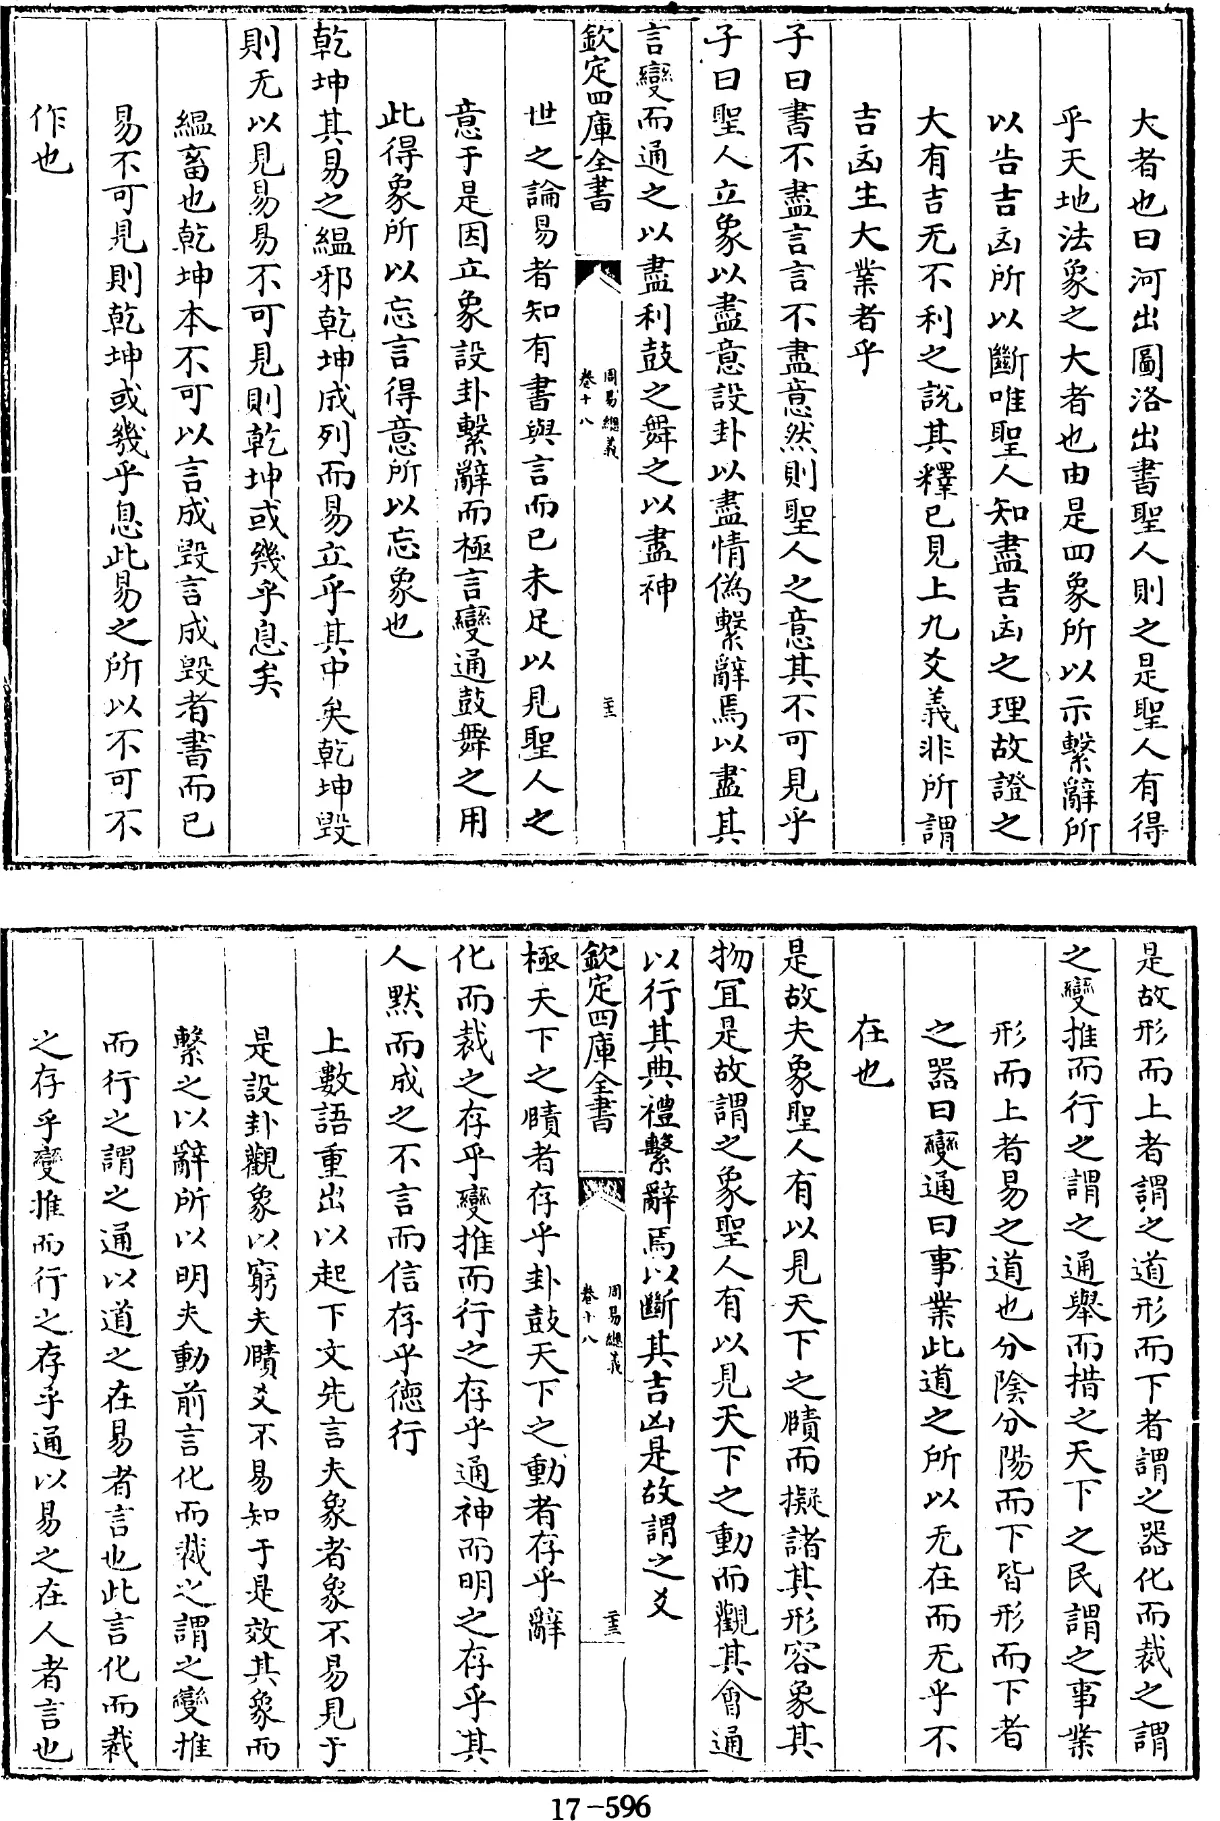 大者也曰河出圖洛出書聖人則之是聖人有得
乎天地法象之大者也由是四象所以示繫辭所
以告吉凶所以斷唯聖人知盡吉凶之理故證之
大有吉无不利之說其釋已見上九爻義非所謂
吉凶生大業者乎
子曰書不盡言言不盡意然則聖人之意其不可見乎
子曰聖人立象以盡意設卦以盡情偽繫辭焉以盡其
言變而通之以盡利鼓之舞之以盡神
欽定四庫全書
周易總義
卷十八
世之論易者知有書與言而已未足以見聖人之
意于是因立象設卦繫辭而極言變通鼓舞之用
此得象所以忘言得意所以忘象也
乾坤其易之縕邪乾坤成列而易立乎其中矣乾坤毀
則无以見易易不可見則乾坤或幾乎息矣
縕畜也乾坤本不可以言成毀言成毀者書而已
易不可見則乾坤或幾乎息此易之所以不可不
作也
是故形而上者謂之道形而下者謂之器化而裁之謂
之變推而行之謂之通舉而措之天下之民謂之事業
形而上者易之道也分陰分陽而下皆形而下者
之器曰變通曰事業此道之所以无在而无乎不
在也
是故夫象聖人有以見天下之賾而擬諸其形容象其
物宜是故謂之象聖人有以見天下之動而觀其會通
以行其典禮繫辭焉以斷其吉凶是故謂之爻
欽定四庫全書
周易總義
卷十八
極天下之賾者存乎卦鼓天下之動者存乎辭
化而裁之存乎變推而行之存乎通神而明之存乎其
人默而成之不言而信存乎德行
上數語重出以起下文先言夫象者象不易見于
是設卦觀象以窮夫賾爻不易知于是效其象而
繫之以辭所以明夫動前言化而裁之謂之變推
而行之謂之通以道之在易者言也此言化而裁
之存乎變推而行之存乎通以易之在人者言也
17-596